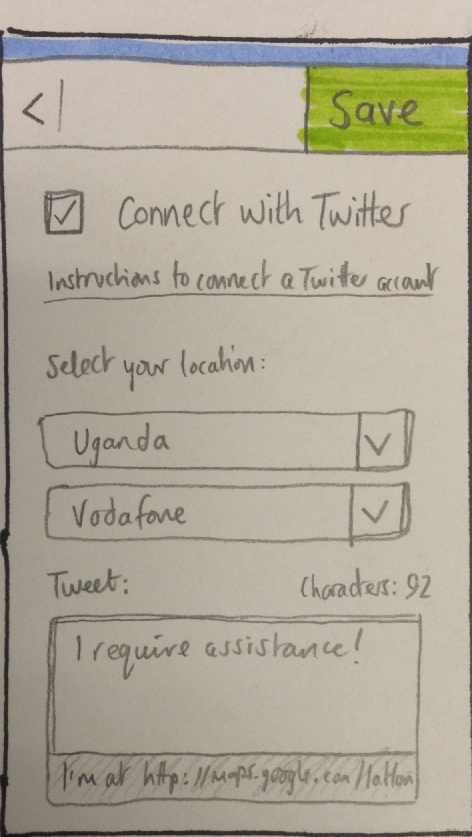 < Save
Connect with Twitter
Instructions to connect a Twitter account
Select your location:
Uganda
Vodafone
Tweet: Characters: 92
I require assistance!
I'm at http://maps.google.com/latlon